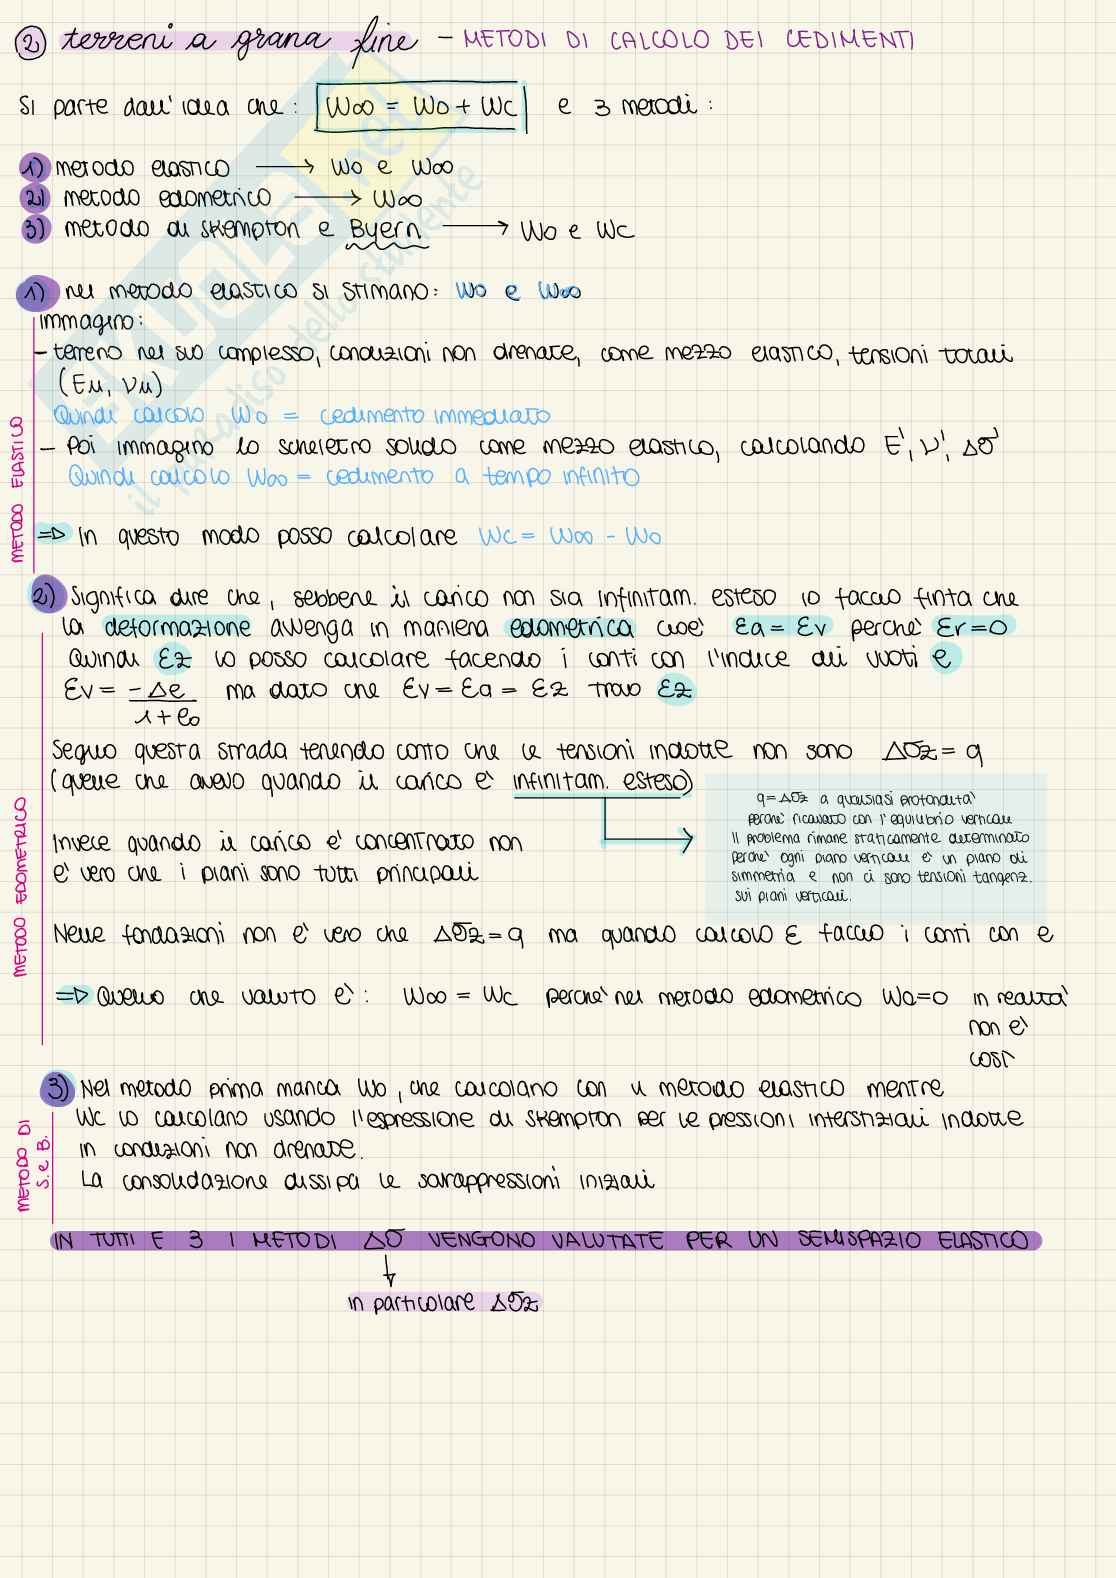 2 terreni a grana fine – METODI DI CALCOLO DEI CEDIMENTI
Si parte dall'idea che: W∞ = W0 + Wc e 3 metodi:
1) metodo elastico ⟶ W0 e W∞
2) metodo edometrico ⟶ W∞
3) metodo di Skempton e Byern ⟶ W0 e Wc
1) nel metodo elastico si stimano: W0 e W∞
immagino:
– terreno nel suo complesso, condizioni non drenate, come mezzo elastico, tensioni totali
(Eu, νu)
Quindi calcolo W0 = cedimento immediato
– Poi immagino lo scheletro solido come mezzo elastico, calcolando E', ν', Δσ'
Quindi calcolo W∞ = cedimento a tempo infinito
⇒ In questo modo posso calcolare Wc = W∞ - W0
METODO ELASTICO
2) Significa dire che, sebbene il carico non sia infinitam. esteso io faccio finta che
la deformazione avvenga in maniera edometrica cioe' εa = εv perche' εr=0
Quindi εz lo posso calcolare facendo i conti con l'indice dei vuoti e
εv = -Δe / 1+e0 ma dato che εv = εa = εz trovo εz
Seguo questa strada tenendo conto che le tensioni indotte non sono Δσz = q
(quelle che avevo quando il carico e' infinitam. esteso)
q = Δσz a qualsiasi profondita'
perche' ricavato con l'equilibrio verticale
Il problema rimane staticamente determinato
perche' ogni piano verticale e' un piano di
simmetria e non ci sono tensioni tangenz.
sui piani verticali.
Invece quando il carico e' concentrato non
e' vero che i piani sono tutti principali
Nelle fondazioni non e' vero che Δσz = q ma quando calcolo ε faccio i conti con e
⇒ Quello che valuto e': W∞ = Wc perche' nel metodo edometrico W0=0 in realta'
non e'
cosi'
METODO EDOMETRICO
3) Nel metodo prima manca W0, che calcolano con il metodo elastico mentre
Wc lo calcolano usando l'espressione di Skempton per le pressioni interstiziali indotte
in condizioni non drenate.
La consolidazione dissipa le sovrappressioni iniziali
METODO DI
S. e B.
IN TUTTI E 3 I METODI Δσ VENGONO VALUTATE PER UN SEMISPAZIO ELASTICO
in particolare Δσz